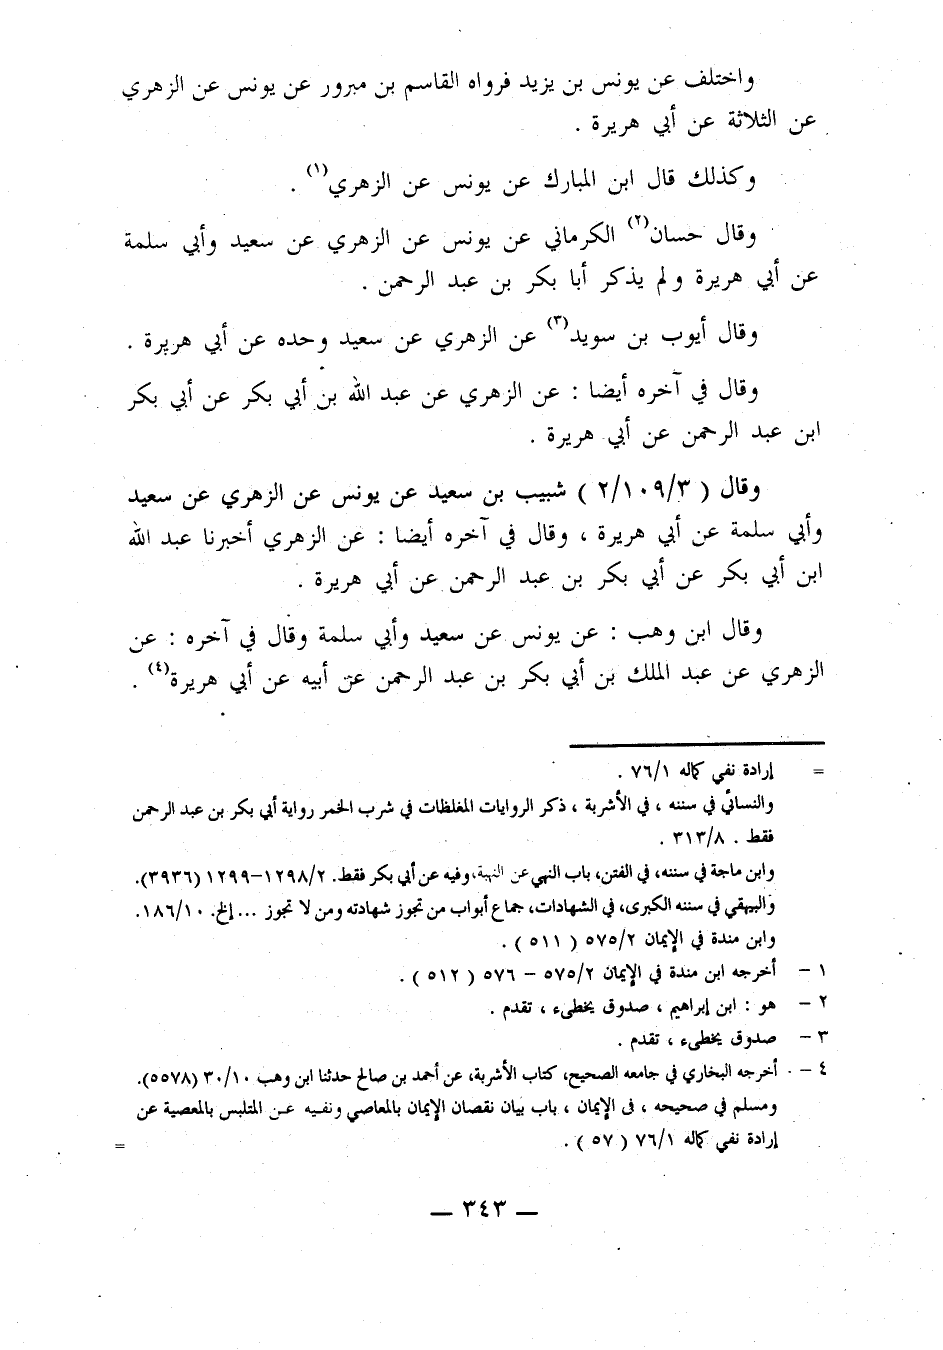 واختلف عن يونس بن يزيد فرواه القاسم بن مبرور عن يونس عن الزهري
عن الثلاثة عن أبي هريرة .
وكذلك قال ابن المبارك عن يونس عن الزهري(١) .
وقال حسان(٢) الكرماني عن يونس عن الزهري عن سعيد وأبي سلمة
عن أبي هريرة ولم يذكر أبا بكر بن عبد الرحمن .
وقال أيوب بن سويد(٣) عن الزهري عن سعيد وحده عن أبي هريرة .
وقال في آخره أيضا : عن الزهري عن عبد الله بن أبي بكر عن أبي بكر
ابن عبد الرحمن عن أبي هريرة .
وقال ( ٢/١٠٩/٣ ) شبيب بن سعيد عن يونس عن الزهري عن سعيد
وأبي سلمة عن أبي هريرة ، وقال في آخره أيضا : عن الزهري أخبرنا عبد الله
ابن أبي بكر عن أبي بكر بن عبد الرحمن عن أبي هريرة .
وقال ابن وهب : عن يونس عن سعيد وأبي سلمة وقال في آخره : عن
الزهري عن عبد الملك بن أبي بكر بن عبد الرحمن عن أبيه عن أبي هريرة(٤) .
= إرادة نفي كماله ٧٦/١ .
والنسائي في سننه ، في الأشربة ، ذكر الروايات المغلظات في شرب الخمر رواية أبي بكر بن عبد الرحمن
فقط . ٣١٣/٨ .
وابن ماجة في سننه، في الفتن، باب النهي عن النهبة، وفيه عن أبي بكر فقط. ١٢٩٨/٢–١٢٩٩ (٣٩٣٦).
والبيهقي في سننه الكبرى، في الشهادات، جماع أبواب من تجوز شهادته ومن لا تجوز ... إلخ. ١٨٦/١٠.
وابن مندة في الإيمان ٥٧٥/٢ ( ٥١١ ) .
١ – أخرجه ابن مندة في الإيمان ٥٧٥/٢ – ٥٧٦ ( ٥١٢ ) .
٢ – هو : ابن إبراهيم ، صدوق يخطىء ، تقدم .
٣ – صدوق يخطىء ، تقدم .
٤ – أخرجه البخاري في جامعه الصحيح، كتاب الأشربة، عن أحمد بن صالح حدثنا ابن وهب ٣٠/١٠ (٥٥٧٨).
ومسلم في صحيحه ، فى الإيمان ، باب بيان نقصان الإيمان بالمعاصي ونفيه عن المتلبس بالمعصية عن
إرادة نفي كماله ٧٦/١ ( ٥٧ ) . =
— ٣٤٣ —